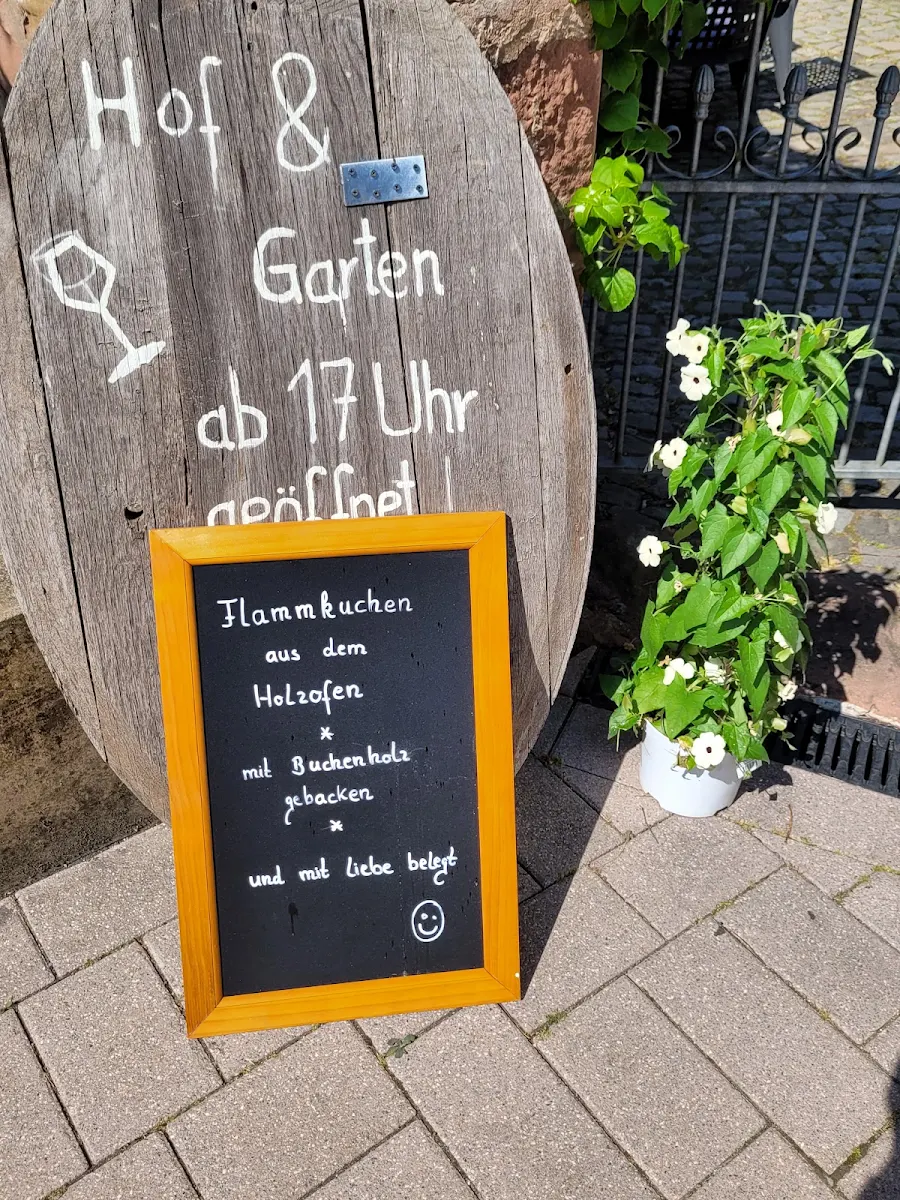 Hof &
Garten
ab 17 Uhr
geöffnet !
Flammkuchen
aus dem
Holzofen
*
mit Buchenholz
gebacken
*
und mit Liebe belegt